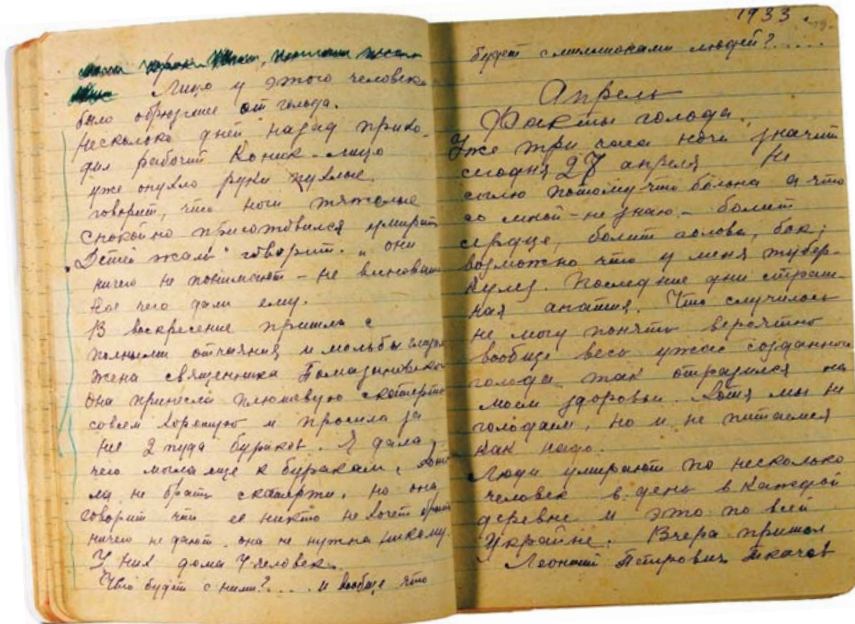 Лицо у этого человека
было обрюзгшее от голода.
Несколько дней назад прихо-
дил рабочий Коник - лицо
уже опухло руки пухлые
говорит, что ноги тяжелые
спокойно приготовился умирать
„Детей жаль" говорит. „они
ничего не понимают - не виноваты
Кое чего дали ему.
В воскресение пришла с
полными отчаяния и мольбы глазами
жена священника
Она принесла плюшевую скатерть
совсем хорошую и просила за
нее 2 пуда бураков. Я дала,
чего могла еще к буракам,
ла не брать скатерти, но она
говорит что ее никто не хочет брать
ничего не дают. она не нужна никому.
У них дома 7 человек.
Что будет с ними?.... и вообще что
1933.
будет с миллионами людей?.....
Апрель
Факты голода.
Уже три часа ночи значит
сегодня 27 апреля Не
сплю потому что больна а что
со мной - не знаю - болит
сердце, болит голова, бок;
возможно что у меня тубер-
кулез. Последние дни страш-
ная апатия. Что случилось
не могу понять вероятно
вообще весь ужас созданного
голода так отразился на
моем здоровьи. Хотя мы не
голодаем, но и не питаемся
как надо.
Люди умирают по несколько
человек в день в каждой
деревне и это по всей
Украине. Вчера пришел
Леонтий Петрович Ткачев